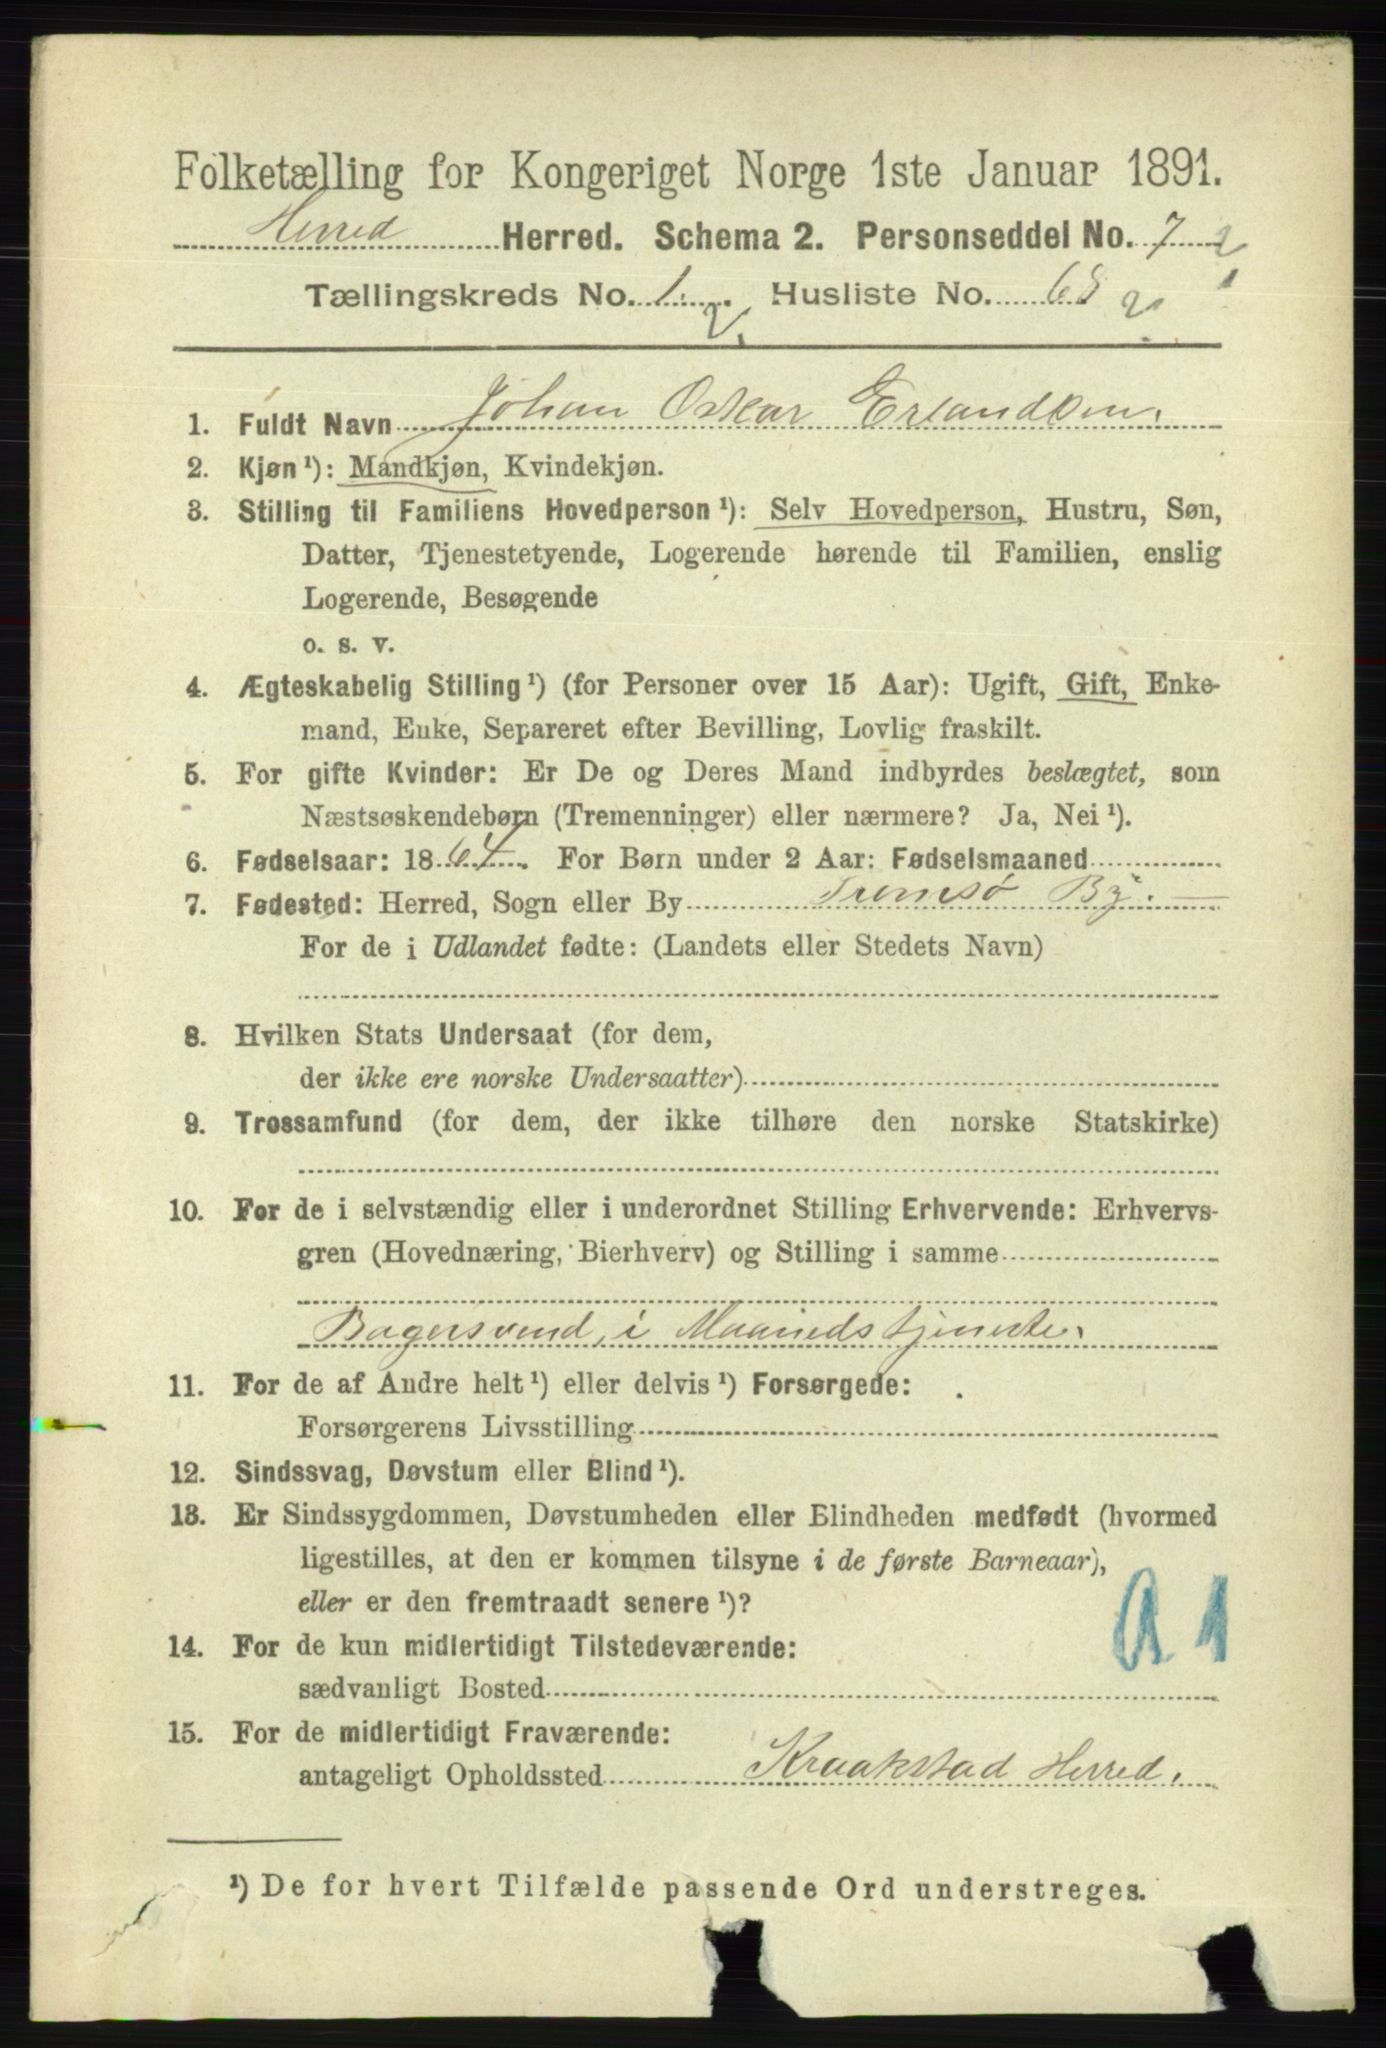 Folketælling for Kongeriget Norge 1ste Januar 1891.
Herred Herred. Schema 2. Personseddel No. 7 2
Tællingskreds No. 1. 2. Husliste No. 68 2
1. Fuldt Navn Johan Oskar Erlandsen.
2. Kjøn ¹): Mandkjøn, Kvindekjøn.
3. Stilling til Familiens Hovedperson ¹): Selv Hovedperson, Hustru, Søn,
Datter, Tjenestetyende, Logerende hørende til Familien, enslig
Logerende, Besøgende
o. s. v.
4. Ægteskabelig Stilling ¹) (for Personer over 15 Aar): Ugift, Gift, Enke-
mand, Enke, Separeret efter Bevilling, Lovlig fraskilt.
5. For gifte Kvinder: Er De og Deres Mand indbyrdes beslægtet, som
Næstsøskendebørn (Tremenninger) eller nærmere? Ja, Nei ¹).
6. Fødselsaar: 1864. For Børn under 2 Aar: Fødselsmaaned
7. Fødested: Herred, Sogn eller By Tromsø By. —
For de i Udlandet fødte: (Landets eller Stedets Navn)
8. Hvilken Stats Undersaat (for dem,
der ikke ere norske Undersaatter)
9. Trossamfund (for dem, der ikke tilhøre den norske Statskirke)
10. For de i selvstændig eller i underordnet Stilling Erhvervende: Erhvervs-
gren (Hovednæring, Bierhverv) og Stilling i samme
Bagersvend, i Maanedstjeneste.
11. For de af Andre helt ¹) eller delvis ¹) Forsørgede:
Forsørgerens Livsstilling
12. Sindssvag, Døvstum eller Blind ¹).
13. Er Sindssygdommen, Døvstumheden eller Blindheden medfødt (hvormed
ligestilles, at den er kommen tilsyne i de første Barneaar),
eller er den fremtraadt senere ¹)?
A 1
14. For de kun midlertidigt Tilstedeværende:
sædvanligt Bosted
15. For de midlertidigt Fraværende:
antageligt Opholdssted Kraakstad Herred.
¹) De for hvert Tilfælde passende Ord understreges.